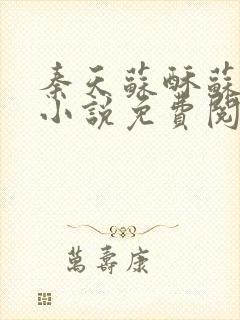 秦天蘇酥蘇
小說免費閱
萬壽康